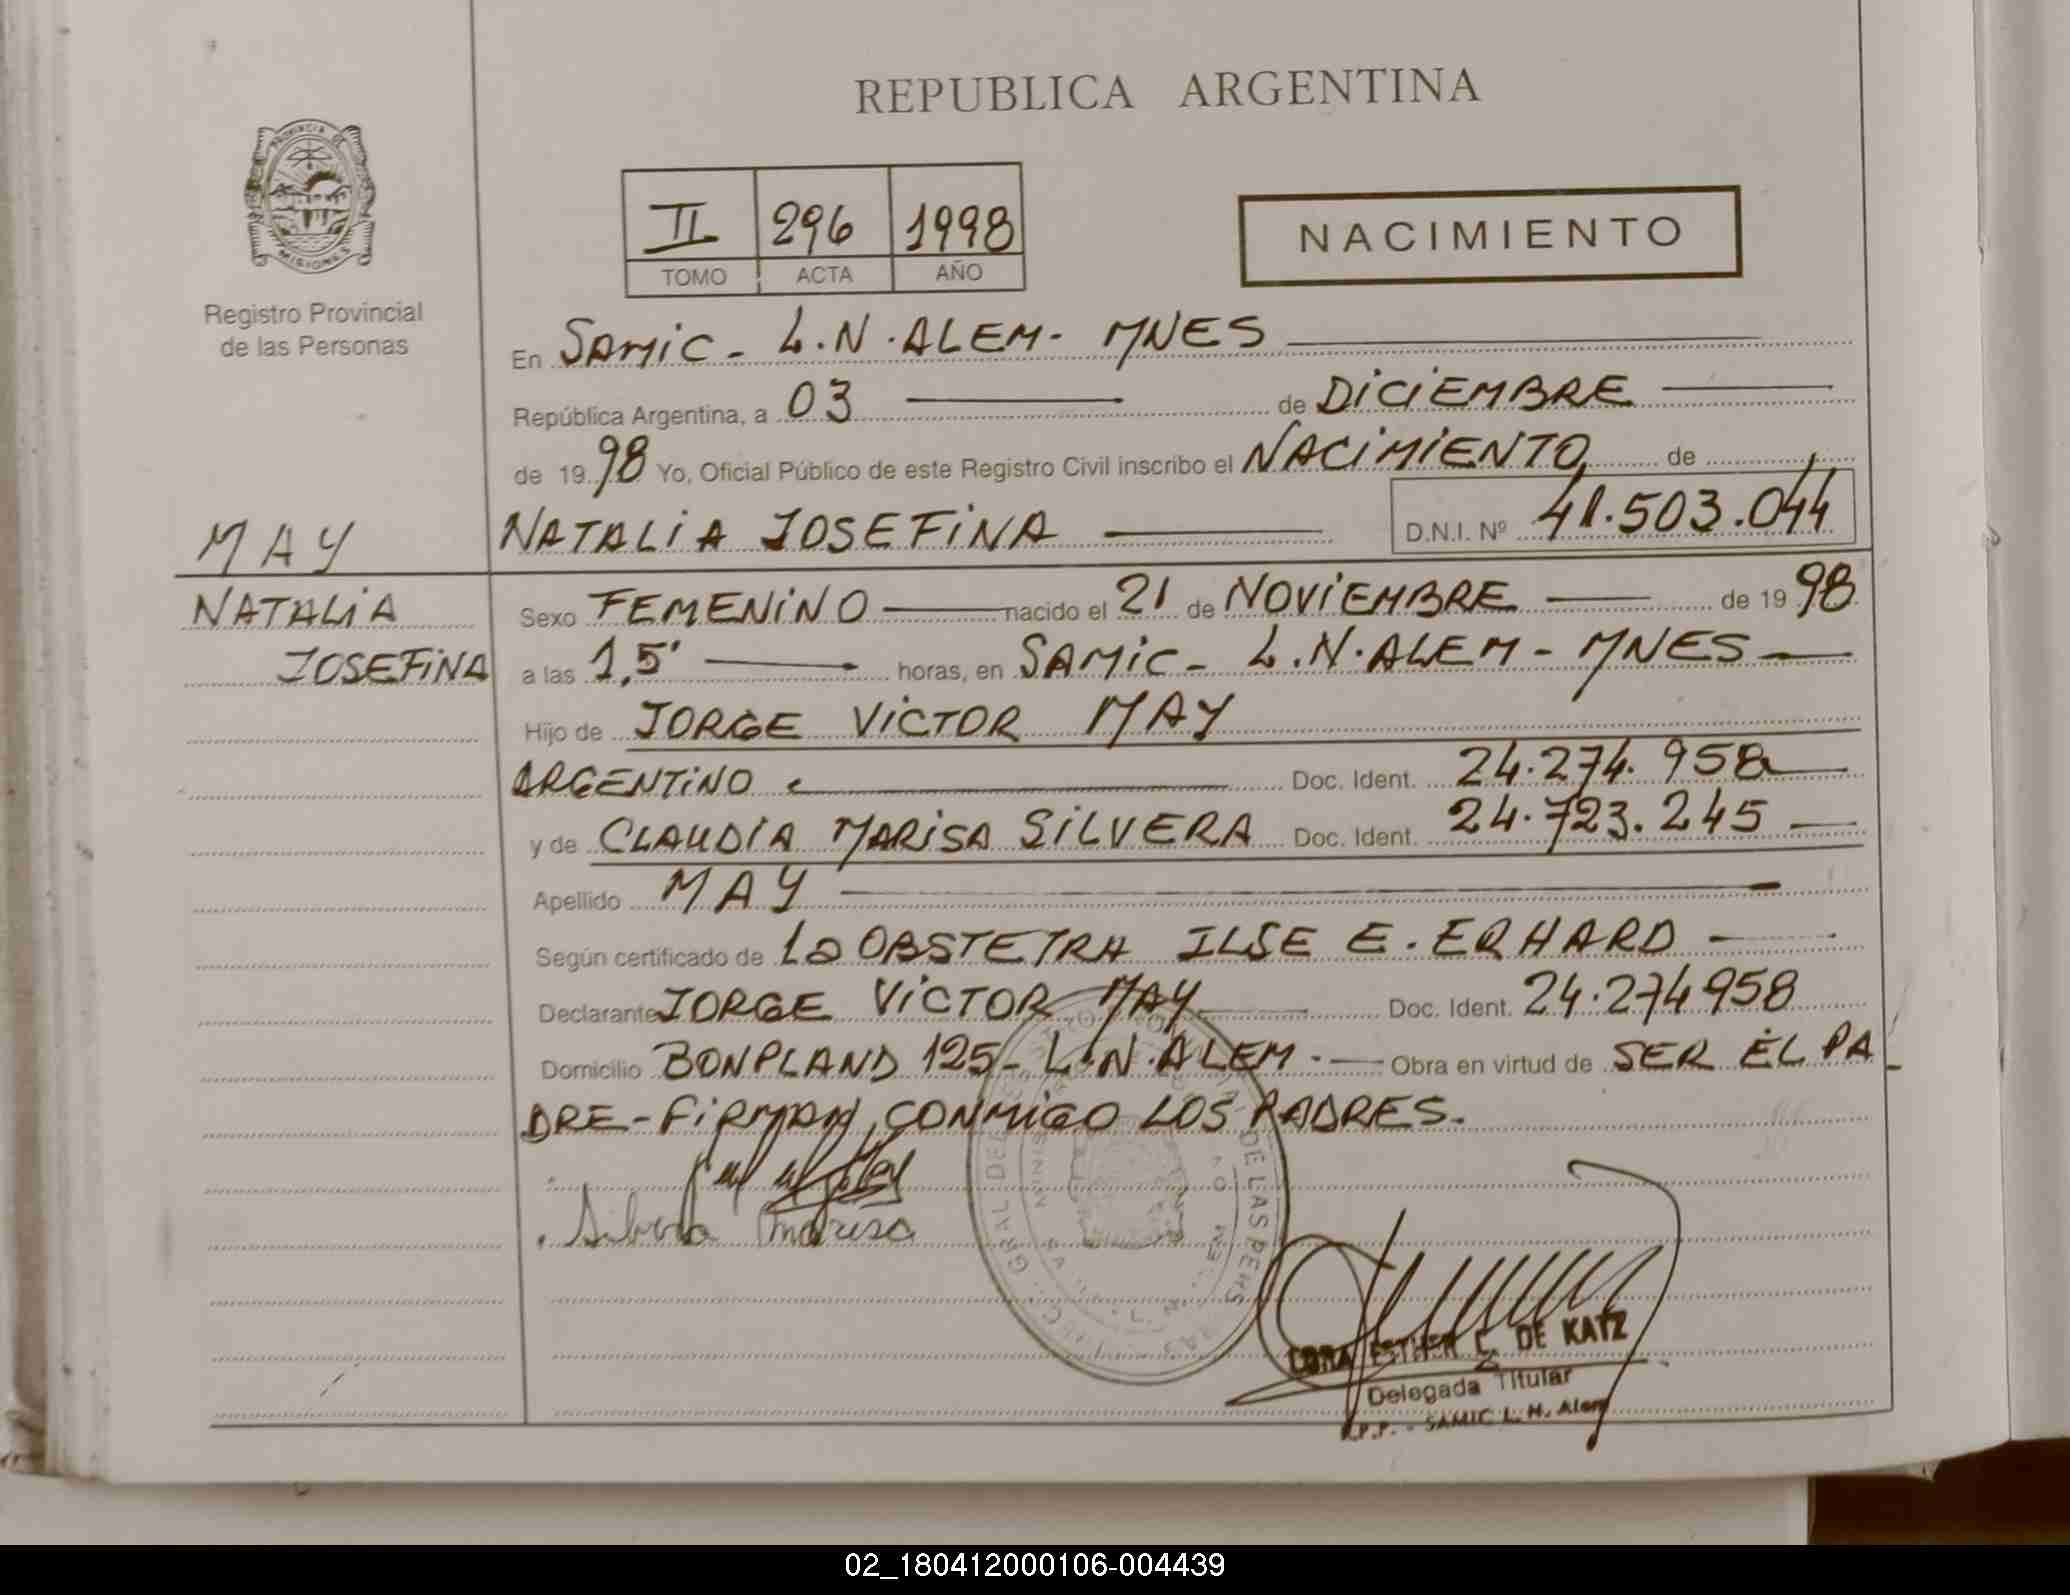 REPUBLICA ARGENTINA
PROVINCIA DE
MISIONES
Registro Provincial
de las Personas
II 296 1998
TOMO ACTA AÑO
NACIMIENTO
En SAMIC - L.N.ALEM - MNES
República Argentina, a 03 de DICIEMBRE
de 1998 Yo, Oficial Público de este Registro Civil inscribo el NACIMIENTO de
MAY NATALIA JOSEFINA D.N.I. Nº 41.503.044
NATALIA Sexo FEMENINO nacido el 21 de NOVIEMBRE de 1998
JOSEFINA a las 1,5' horas, en SAMIC - L.N.ALEM - MNES
Hijo de JORGE VICTOR MAY
ARGENTINO Doc. Ident. 24.274.958
y de CLAUDIA MARISA SILVERA Doc. Ident. 24.723.245
Apellido MAY
Según certificado de La OBSTETRA ILSE E. ERHARD
Declarante JORGE VICTOR MAY Doc. Ident. 24.274958
Domicilio BONPLAND 125 - L.N.ALEM. Obra en virtud de SER EL PA
DRE - FIRMAN CONMIGO LOS PADRES.
Silvera Marisa
DE LAS PERS
CORA ESTHER C. DE KATZ
Delegada Titular
R.P.P. - SAMIC L. N. Alem
02_180412000106-004439